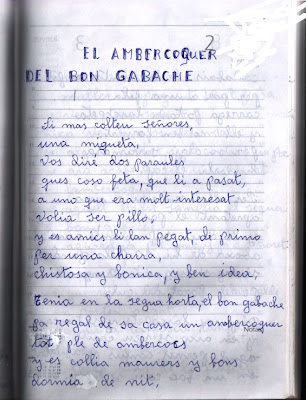 2
EL AMBERCOQUER
DEL BON GABACHE
Si mas colten señores,
una miqueta,
vos diré dos paraules
ques coso feta, que li a pasat,
a uno que era moll interesat
volia ser pillo,
y es amics li lan pegat, de primo
per una charra,
chistosa y bonica, y ben idea,
Tenia en la segua horta, el bon gabache
fa regal de sa casa un ambercoquer
tot ple de ambercocs
y es collia maurers y bons
dormia de nit,